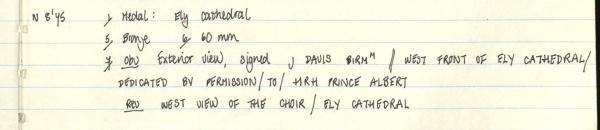 N 8'45 1, Medal: Ely Cathedral
5, Bronze 6, 60 mm
7, Obv Exterior view, signed J DAVIS BIRMᴹ // WEST FRONT OF ELY CATHEDRAL/
DEDICATED BY PERMISSION/TO/HRH PRINCE ALBERT
Rev WEST VIEW OF THE CHOIR/ELY CATHEDRAL